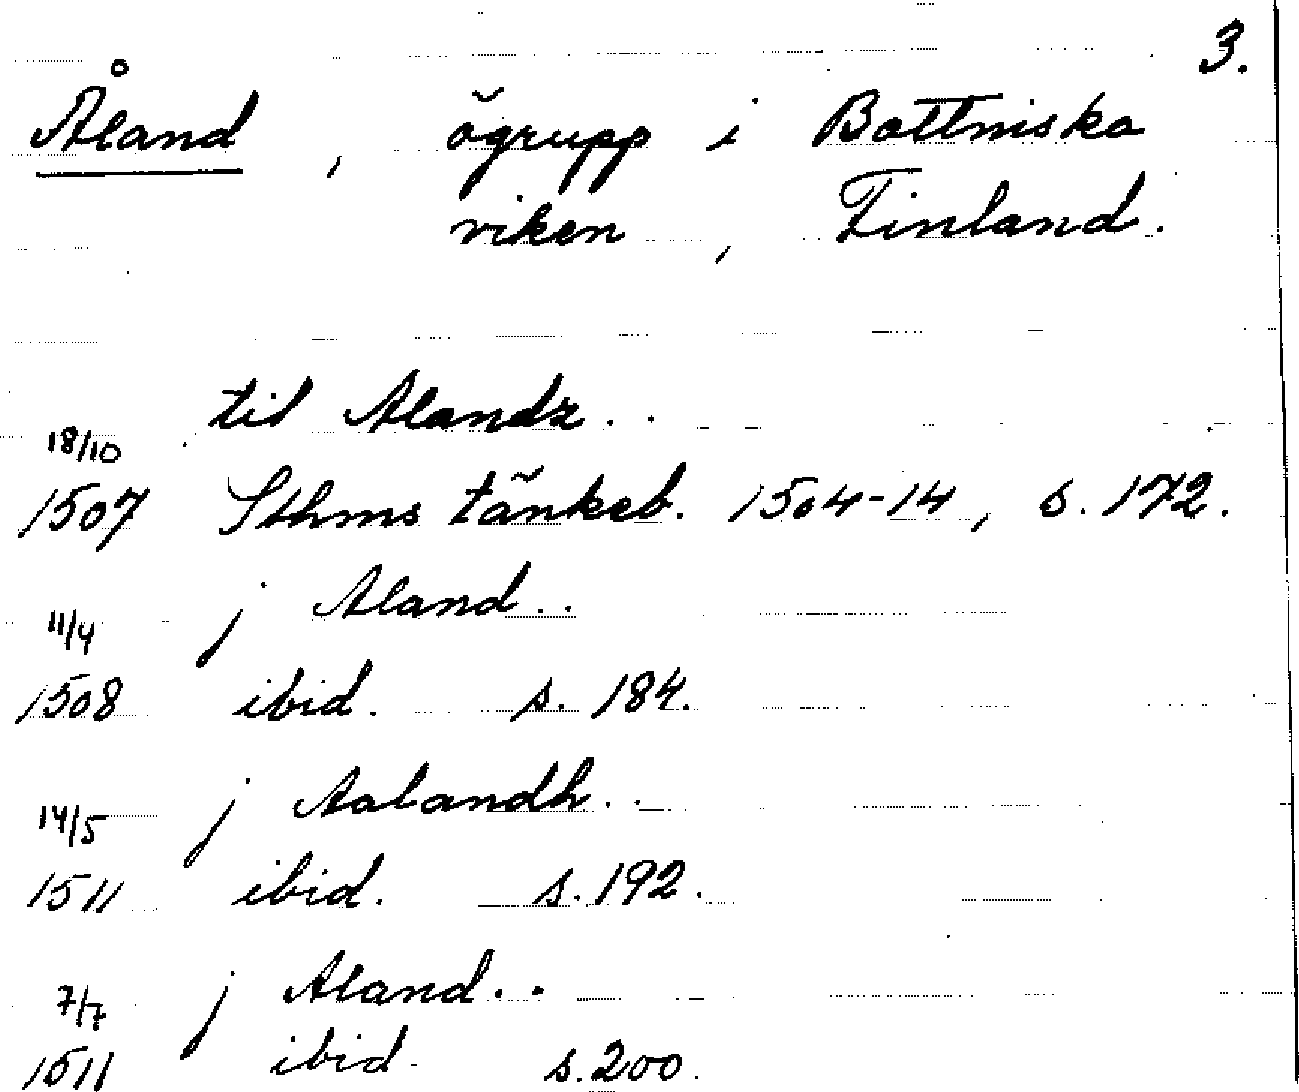 3.
Åland, ögrupp i Bottniska
viken, Finland.
til Alandz..
18/10
1507 Sthms tänkeb. 1504-14, s. 172.
j Aland..
11/4
1508 ibid. s. 184.
j Aalandh..
14/5
1511 ibid. s. 192.
j Aland..
7/7
1511 ibid. s. 200.